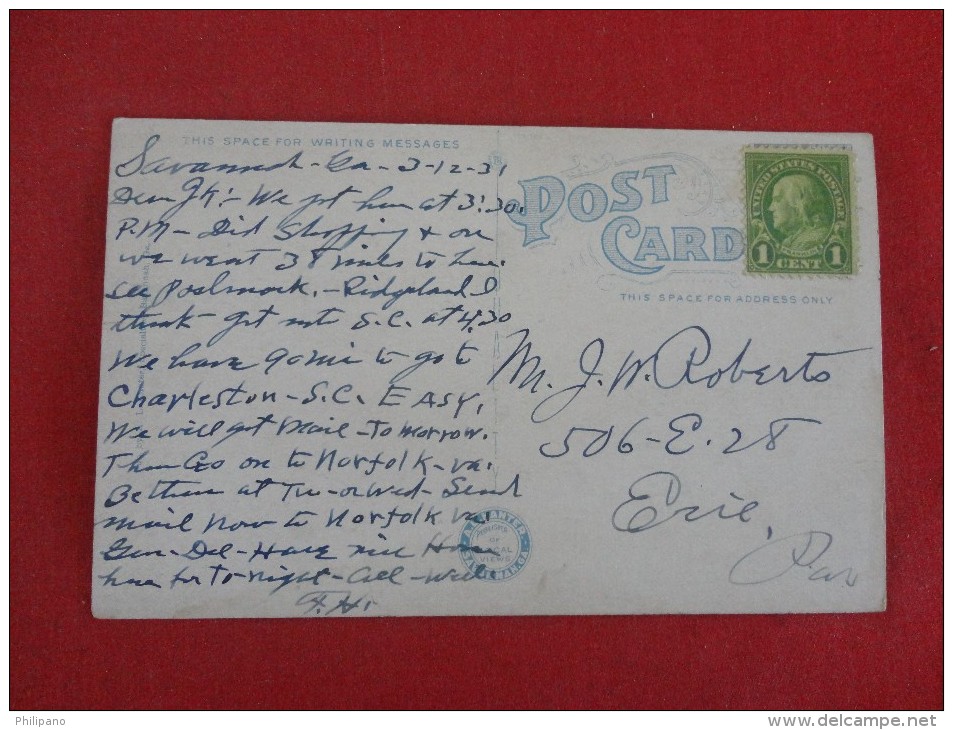 THIS SPACE FOR WRITING MESSAGES
Savannah - Ga - 3-12-31
Dear JK:- We got here at 3:30.
P.M - Did Shopping & on
we went 38 miles to here.
see Postmark. - Ridgeland I
think - got into S.C. at 4:30
We have 90 mi to go to
Charleston - S.C. EASY.
We will get mail - Tomorrow.
Then Go on to Norfolk - Va.
Be there at Tu - or Wed - Send
mail Now to Norfolk Va.
Gen - Del - Have nice Home
here for To-night - All - Well
F.H.
POST CARD
THIS SPACE FOR ADDRESS ONLY
UNITED STATES POSTAGE
FRANKLIN
1 CENT 1
Mr. J. W. Roberts
506 - E. 28
Erie,
Pa
Philipano
www.delcampe.net